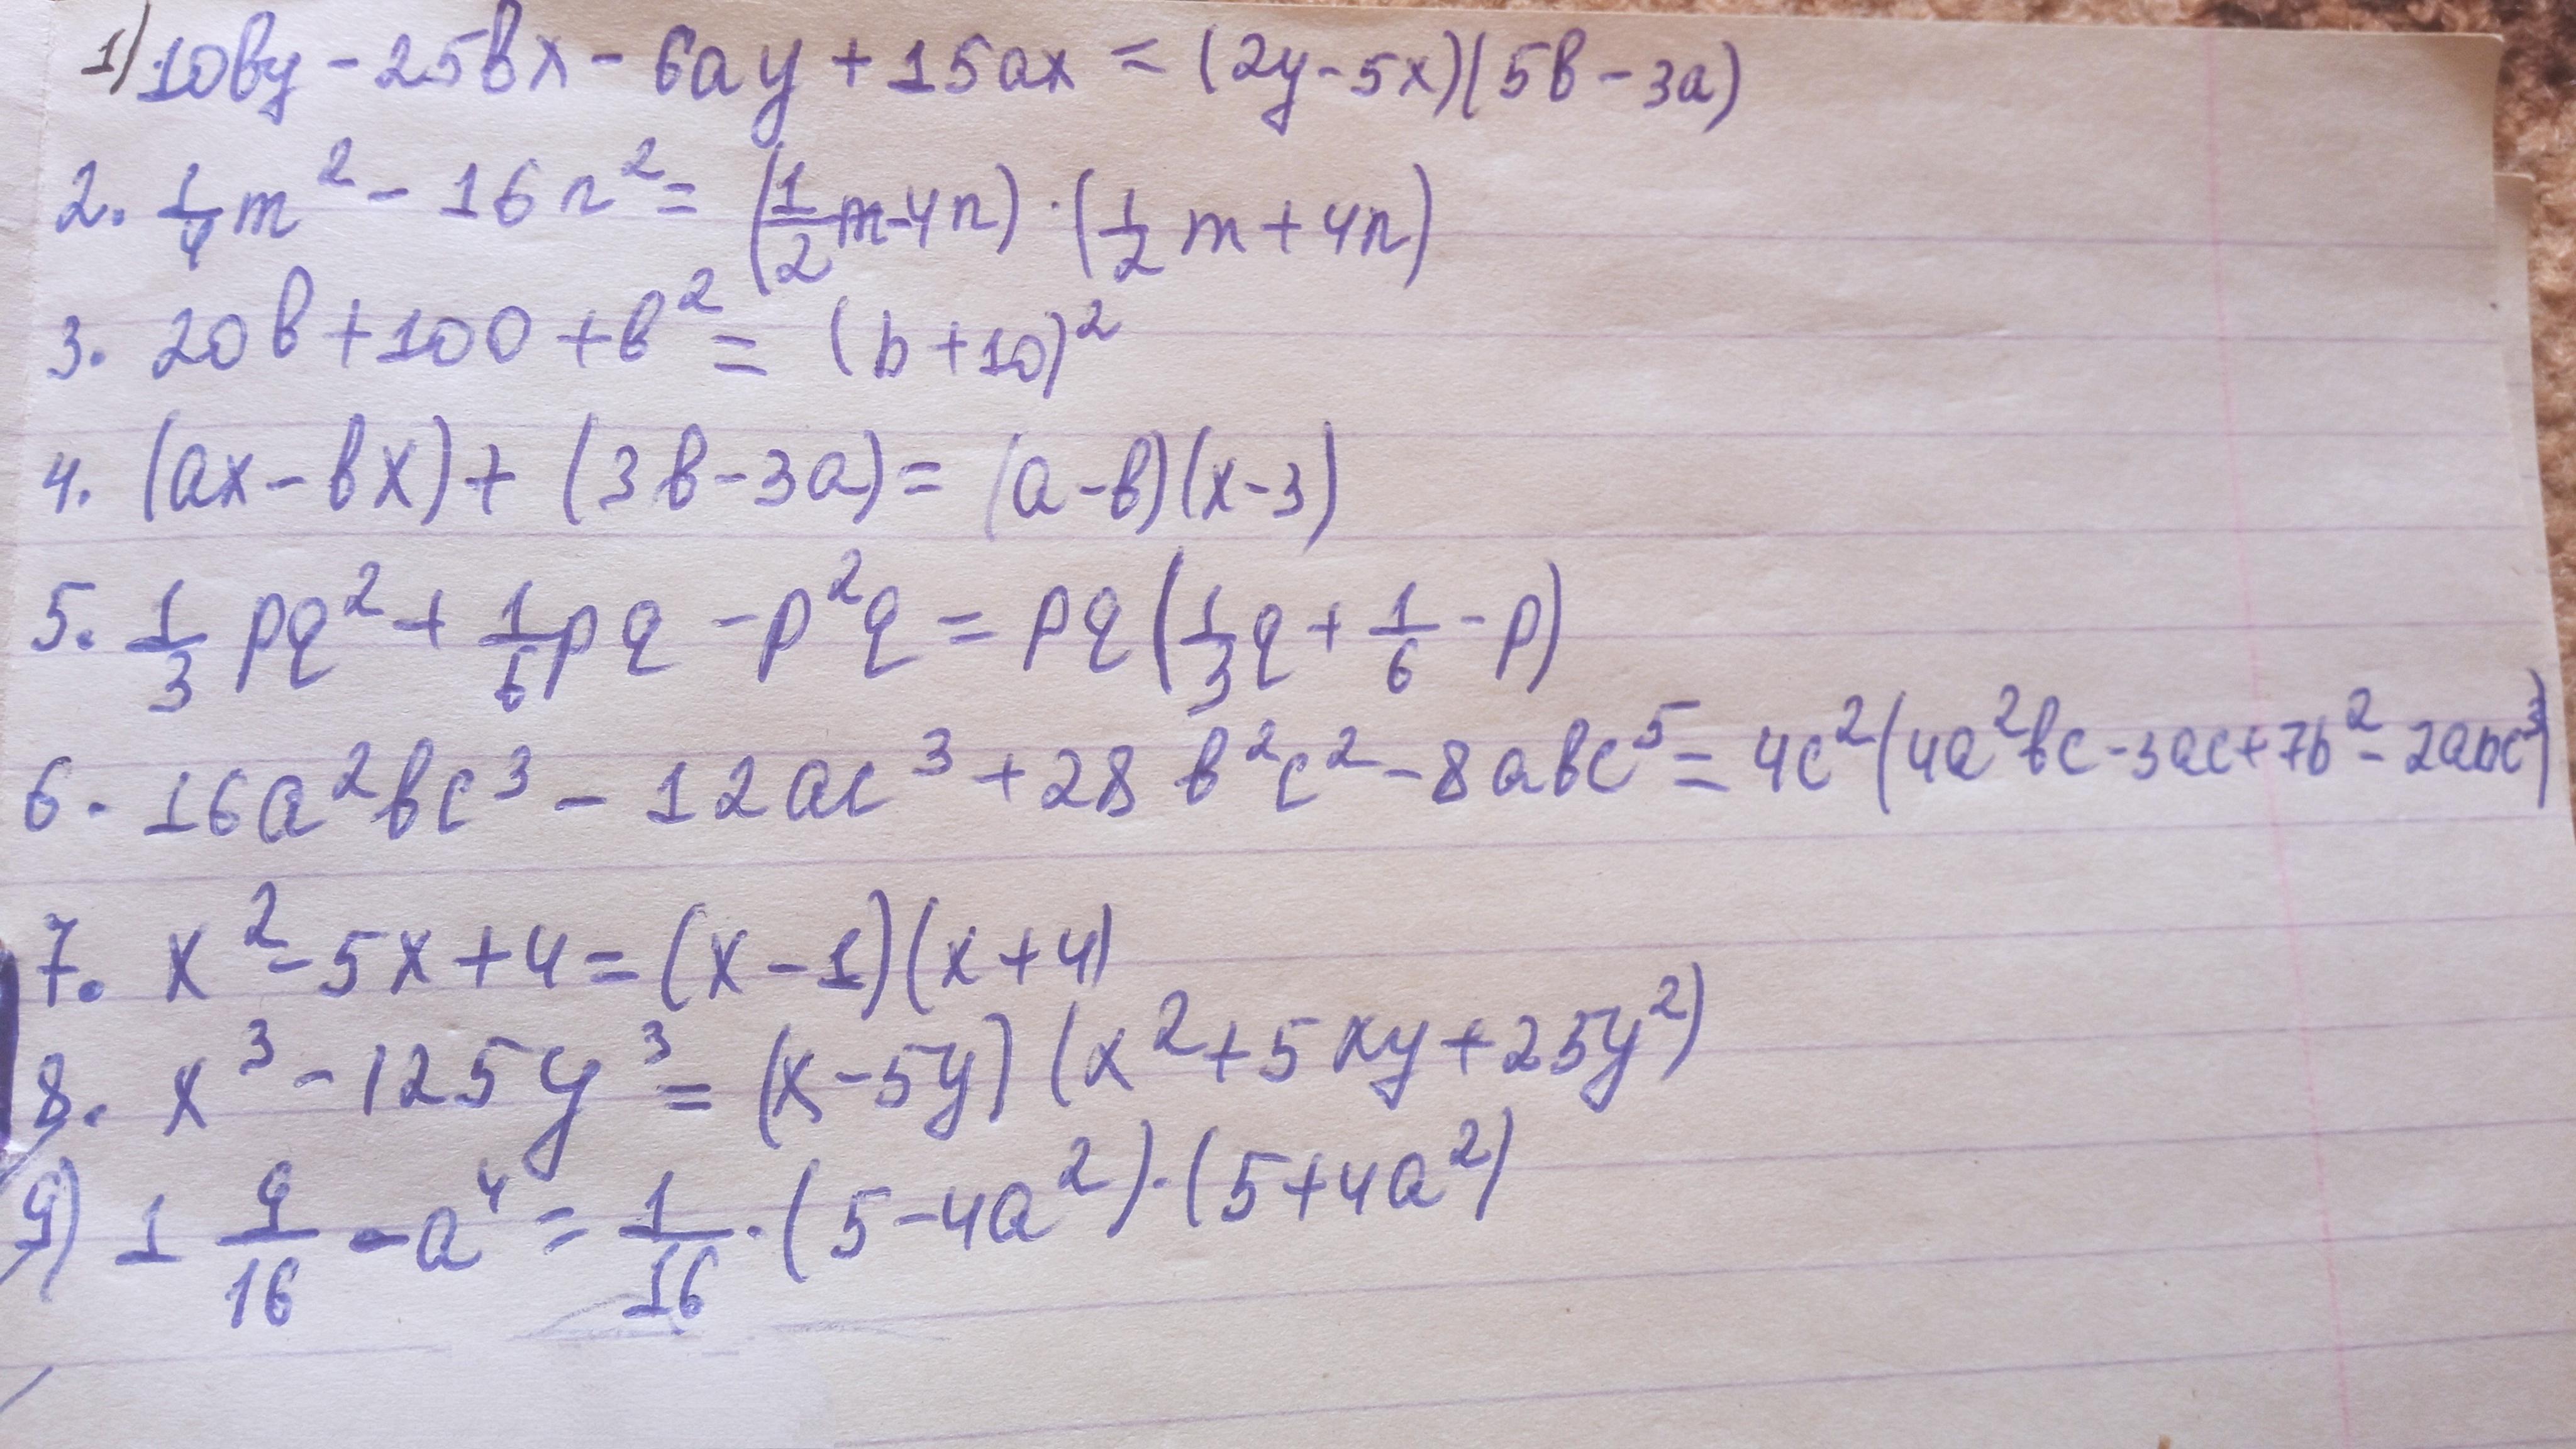 1) 10by - 25bx - 6ay + 15ax = (2y - 5x)(5b - 3a)
2. 1/4 m² - 16n² = (1/2 m - 4n) · (1/2 m + 4n)
3. 20b + 100 + b² = (b + 10)²
4. (ax - bx) + (3b - 3a) = (a - b)(x - 3)
5. 1/3 pq² + 1/6 pq - p²q = pq(1/3 q + 1/6 - p)
6. 16a²bc³ - 12ac³ + 28b²c² - 8abc⁵ = 4c²(4a²bc - 3ac + 7b² - 2abc³)
7. x² - 5x + 4 = (x - 1)(x + 4)
8. x³ - 125y³ = (x - 5y)(x² + 5xy + 25y²)
9) 1 9/16 - a⁴ = 1/16 · (5 - 4a²) · (5 + 4a²)